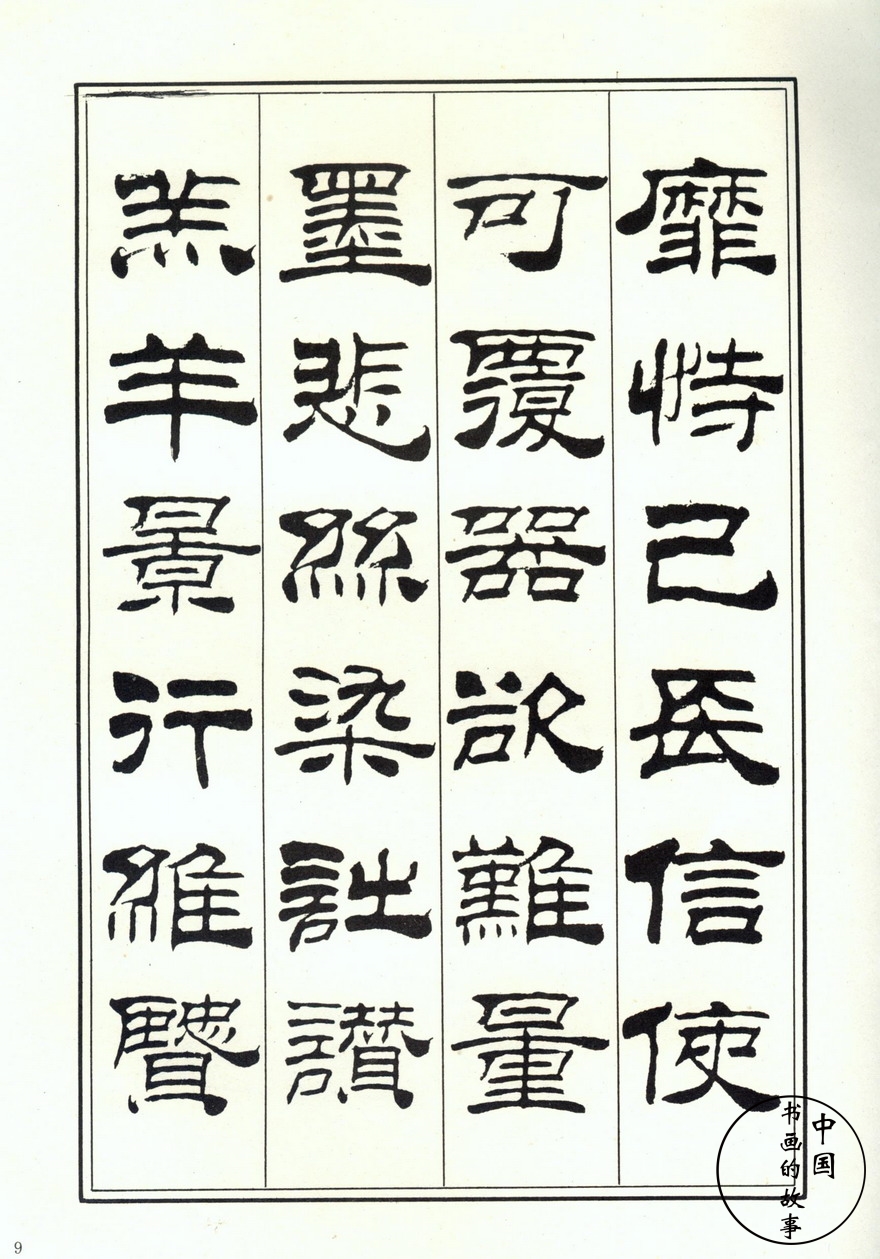 靡恃己長信使
可覆器欲難量
墨悲絲染詩讚
羔羊景行維賢
中国
书画的故事
9